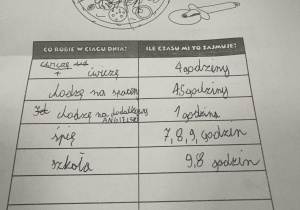 CO ROBIĘ W CIĄGU DNIA? ILE CZASU MI TO ZAJMUJE?
+ ćwiczę 4 godziny
chodzę na spacer godziny
chodzę na dodatkowy ANGIELSKI 1 godzina
śpię 7, 8, 9, godzin
szkoła 9,8 godzin